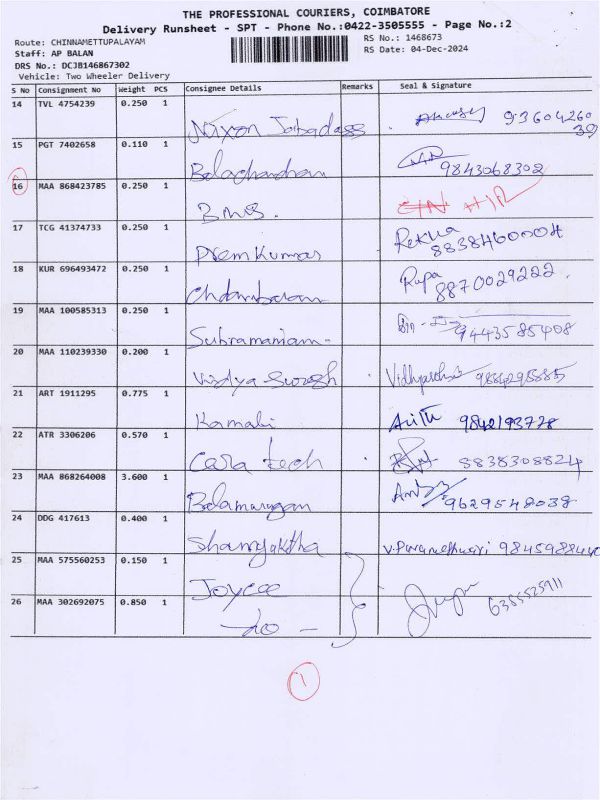 THE PROFESSIONAL COURIERS, COIMBATORE
Delivery Runsheet - SPT - Phone No.:0422-3505555 - Page No.:2
Route: CHINNAMETTUPALAYAM
RS No.: 1468673
Staff: AP BALAN
RS Date: 04-Dec-2024
DRS No.: DCJB146867302
Vehicle: Two Wheeler Delivery
S No Consignment No Weight PCS Consignee Details Remarks Seal & Signature
14 TVL 4754239 0.250 1 Nixon 93604260
39
15 PGT 7402658 0.110 1 Balachandran 9843068302
16 MAA 868423785 0.250 1 BMS.
17 TCG 41374733 0.250 1 Prem Kumar Rekha
8838460004
18 KUR 696493472 0.250 1 Chidambaram Rupa
8870029222.
19 MAA 100585313 0.250 1 Subramaniam- 9443585408
20 MAA 110239330 0.200 1 Vidya Suresh 9884295885
21 ART 1911295 0.775 1 Kamali 9842193728
22 ATR 3306206 0.570 1 Cera tech 8838308824
23 MAA 868264008 3.600 1 Balamurugan 9629548038
24 DDG 417613 0.400 1 V.Parameshwari 9845988440
25 MAA 575560253 0.150 1 Joycee
26 MAA 302692075 0.850 1 6385525911
1